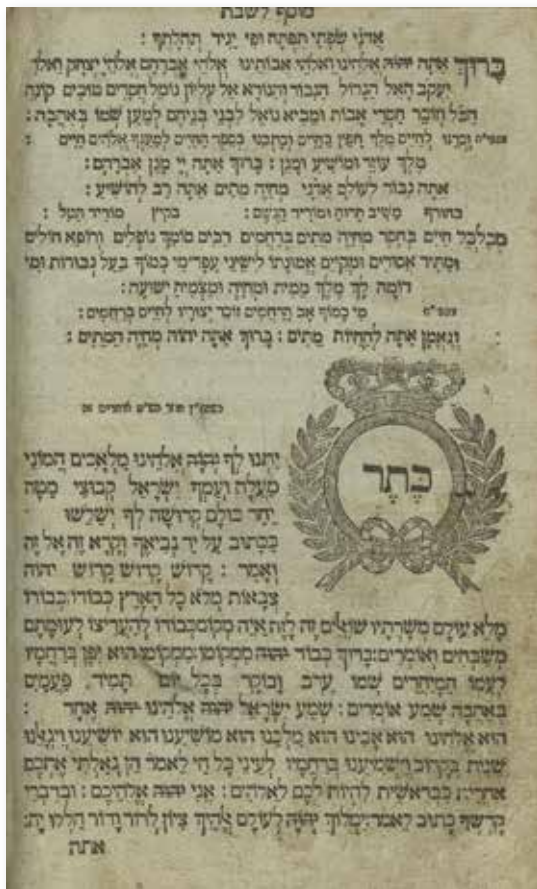 מוסף לשבת
אדני שפתי תפתח ופי יגיד תהלתך :
ברוך אתה יהוה אלהינו ואלהי אבותינו אלהי אברהם אלהי יצחק ואלהי
יעקב האל הגדול הגבור והנורא אל עליון גומל חסדים טובים קונה
הכל וזוכר חסדי אבות ומביא גואל לבני בניהם למען שמו באהבה :
זכרנו לחיים מלך חפץ בחיים וכתבנו בספר החיים למענך אלהים חיים :
מלך עוזר ומושיע ומגן : ברוך אתה יי מגן אברהם :
אתה גבור לעולם אדני מחיה מתים אתה רב להושיע :
בחורף משיב הרוח ומוריד הגשם : בקיץ מוריד הטל :
מכלכל חיים בחסד מחיה מתים ברחמים רבים סומך נופלים ורופא חולים
ומתיר אסורים ומקיים אמונתו לישיני עפר מי כמוך בעל גבורות ומי
דומה לך מלך ממית ומחיה ומצמיח ישועה :
מי כמוך אב הרחמים זוכר יצוריו לחיים ברחמים :
ונאמן אתה להחיות מתים : ברוך אתה יהוה מחיה המתים :
כתר
יתנו לך יהוה אלהינו מלאכים המוני
מעלה ועמך ישראל קבוצי מטה
יחד כולם קדושה לך ישלשו
ככתוב על יד נביאך וקרא זה אל זה
ואמר : קדוש קדוש קדוש יהוה
צבאות מלא כל הארץ כבודו: כבודו
מלא עולם משרתיו שואלים זה לזה איה מקום כבודו להעריצו לעומתם
משבחים ואומרים: ברוך כבוד יהוה ממקומו: ממקומו הוא יפן ברחמיו
לעמו המיחדים שמו ערב ובוקר בכל יום תמיד פעמים
באהבה שמע אומרים : שמע ישראל יהוה אלהינו יהוה אחד :
הוא אלהינו הוא אבינו הוא מלכנו הוא מושיענו הוא יושיענו ויגאלנו
שנית בקרוב וישמיענו ברחמיו לעיני כל חי לאמר הן גאלתי אתכם
אחרית כבראשית להיות לכם לאלהים : אני יהוה אלהיכם : ובדברי
קדשך כתוב לאמר: ימלוך יהוה לעולם אלהיך ציון לדור ודור הללו יה:
אתה